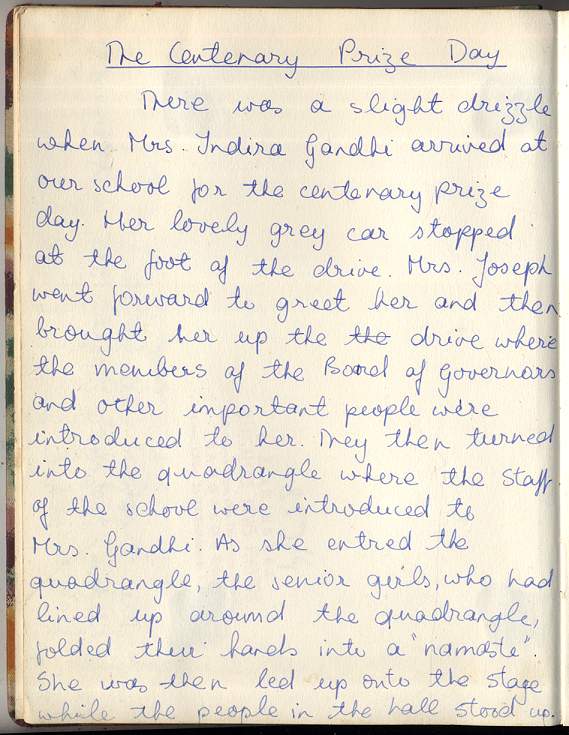 The Centenary Prize Day
There was a slight drizzle
when Mrs. Indira Gandhi arrived at
our school for the centenary prize
day. Her lovely grey car stopped
at the foot of the drive. Mrs. Joseph
went forward to greet her and then
brought her up the the drive where
the members of the Board of Governors
and other important people were
introduced to her. They then turned
into the quadrangle where the Staff
of the school were introduced to
Mrs. Gandhi. As she entred the
quadrangle, the senior girls, who had
lined up around the quadrangle,
folded their hands into a "namaste".
She was then led up onto the stage
while the people in the hall stood up.